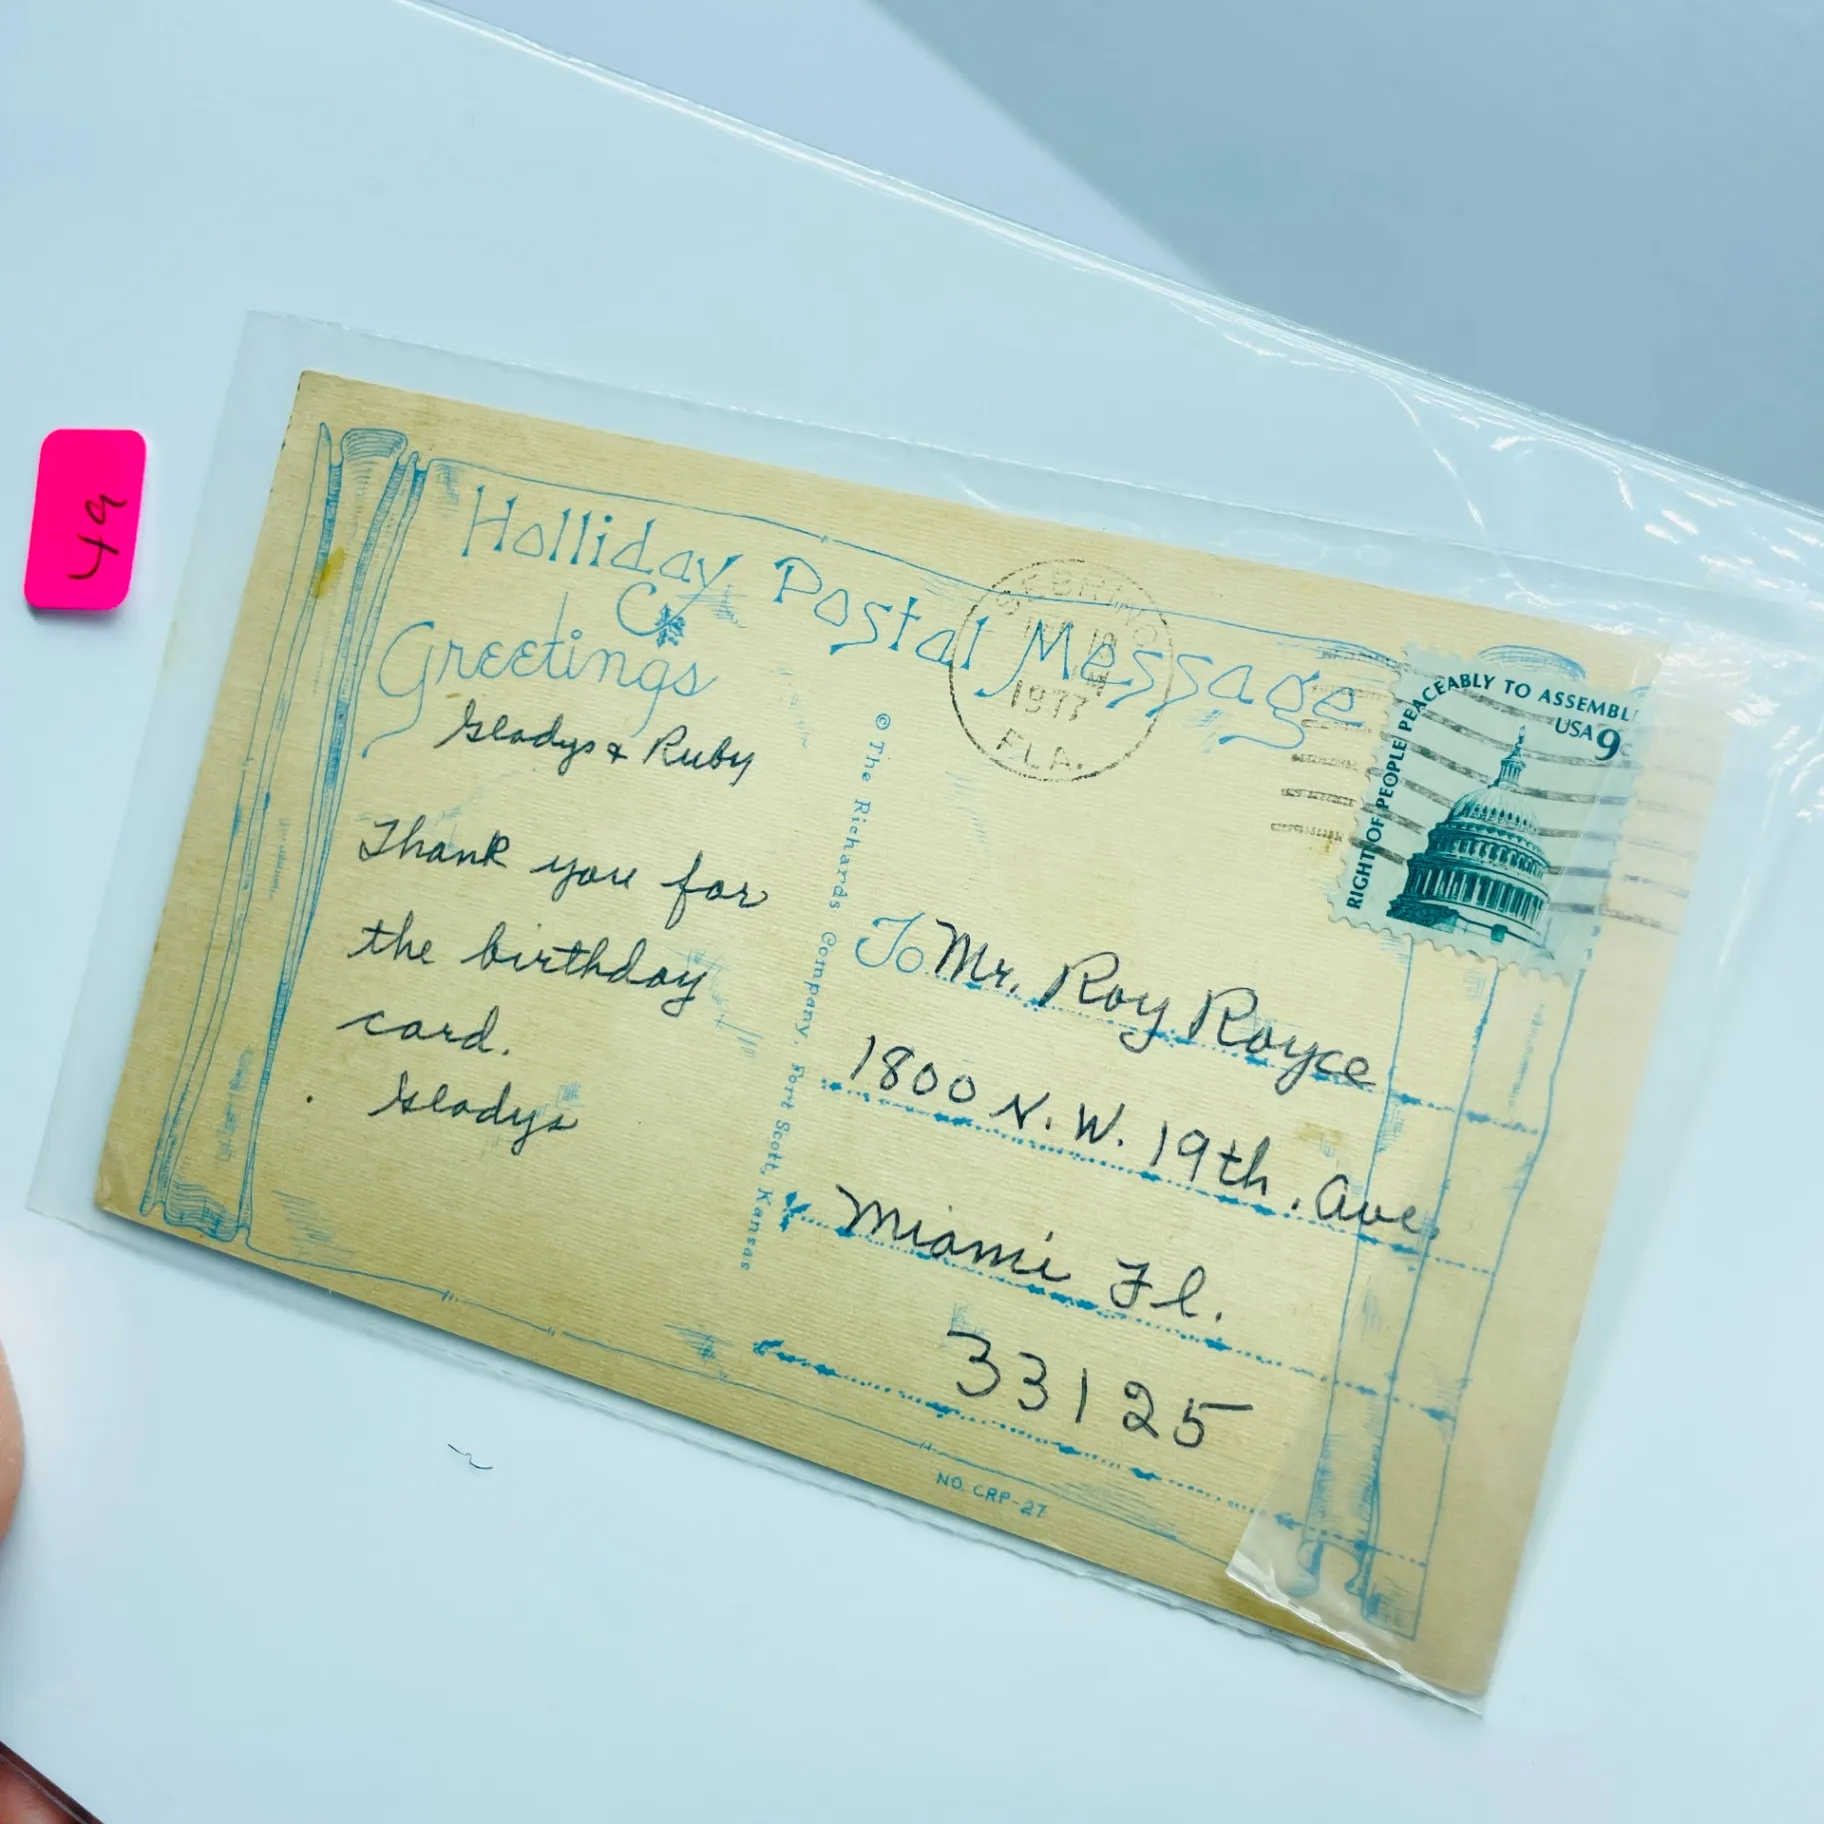 49
Holliday Postal Message
Greetings
Gladys & Ruby
Thank you for
the birthday
card.
Gladys
© The Richards Company, Fort Scott, Kansas
SEBRING
1977
FLA.
RIGHT OF PEOPLE PEACEABLY TO ASSEMBL
USA 9c
To Mr. Roy Royce
1800 N.W. 19th. Ave.
Miami Fl.
33125
NO. CRP-27